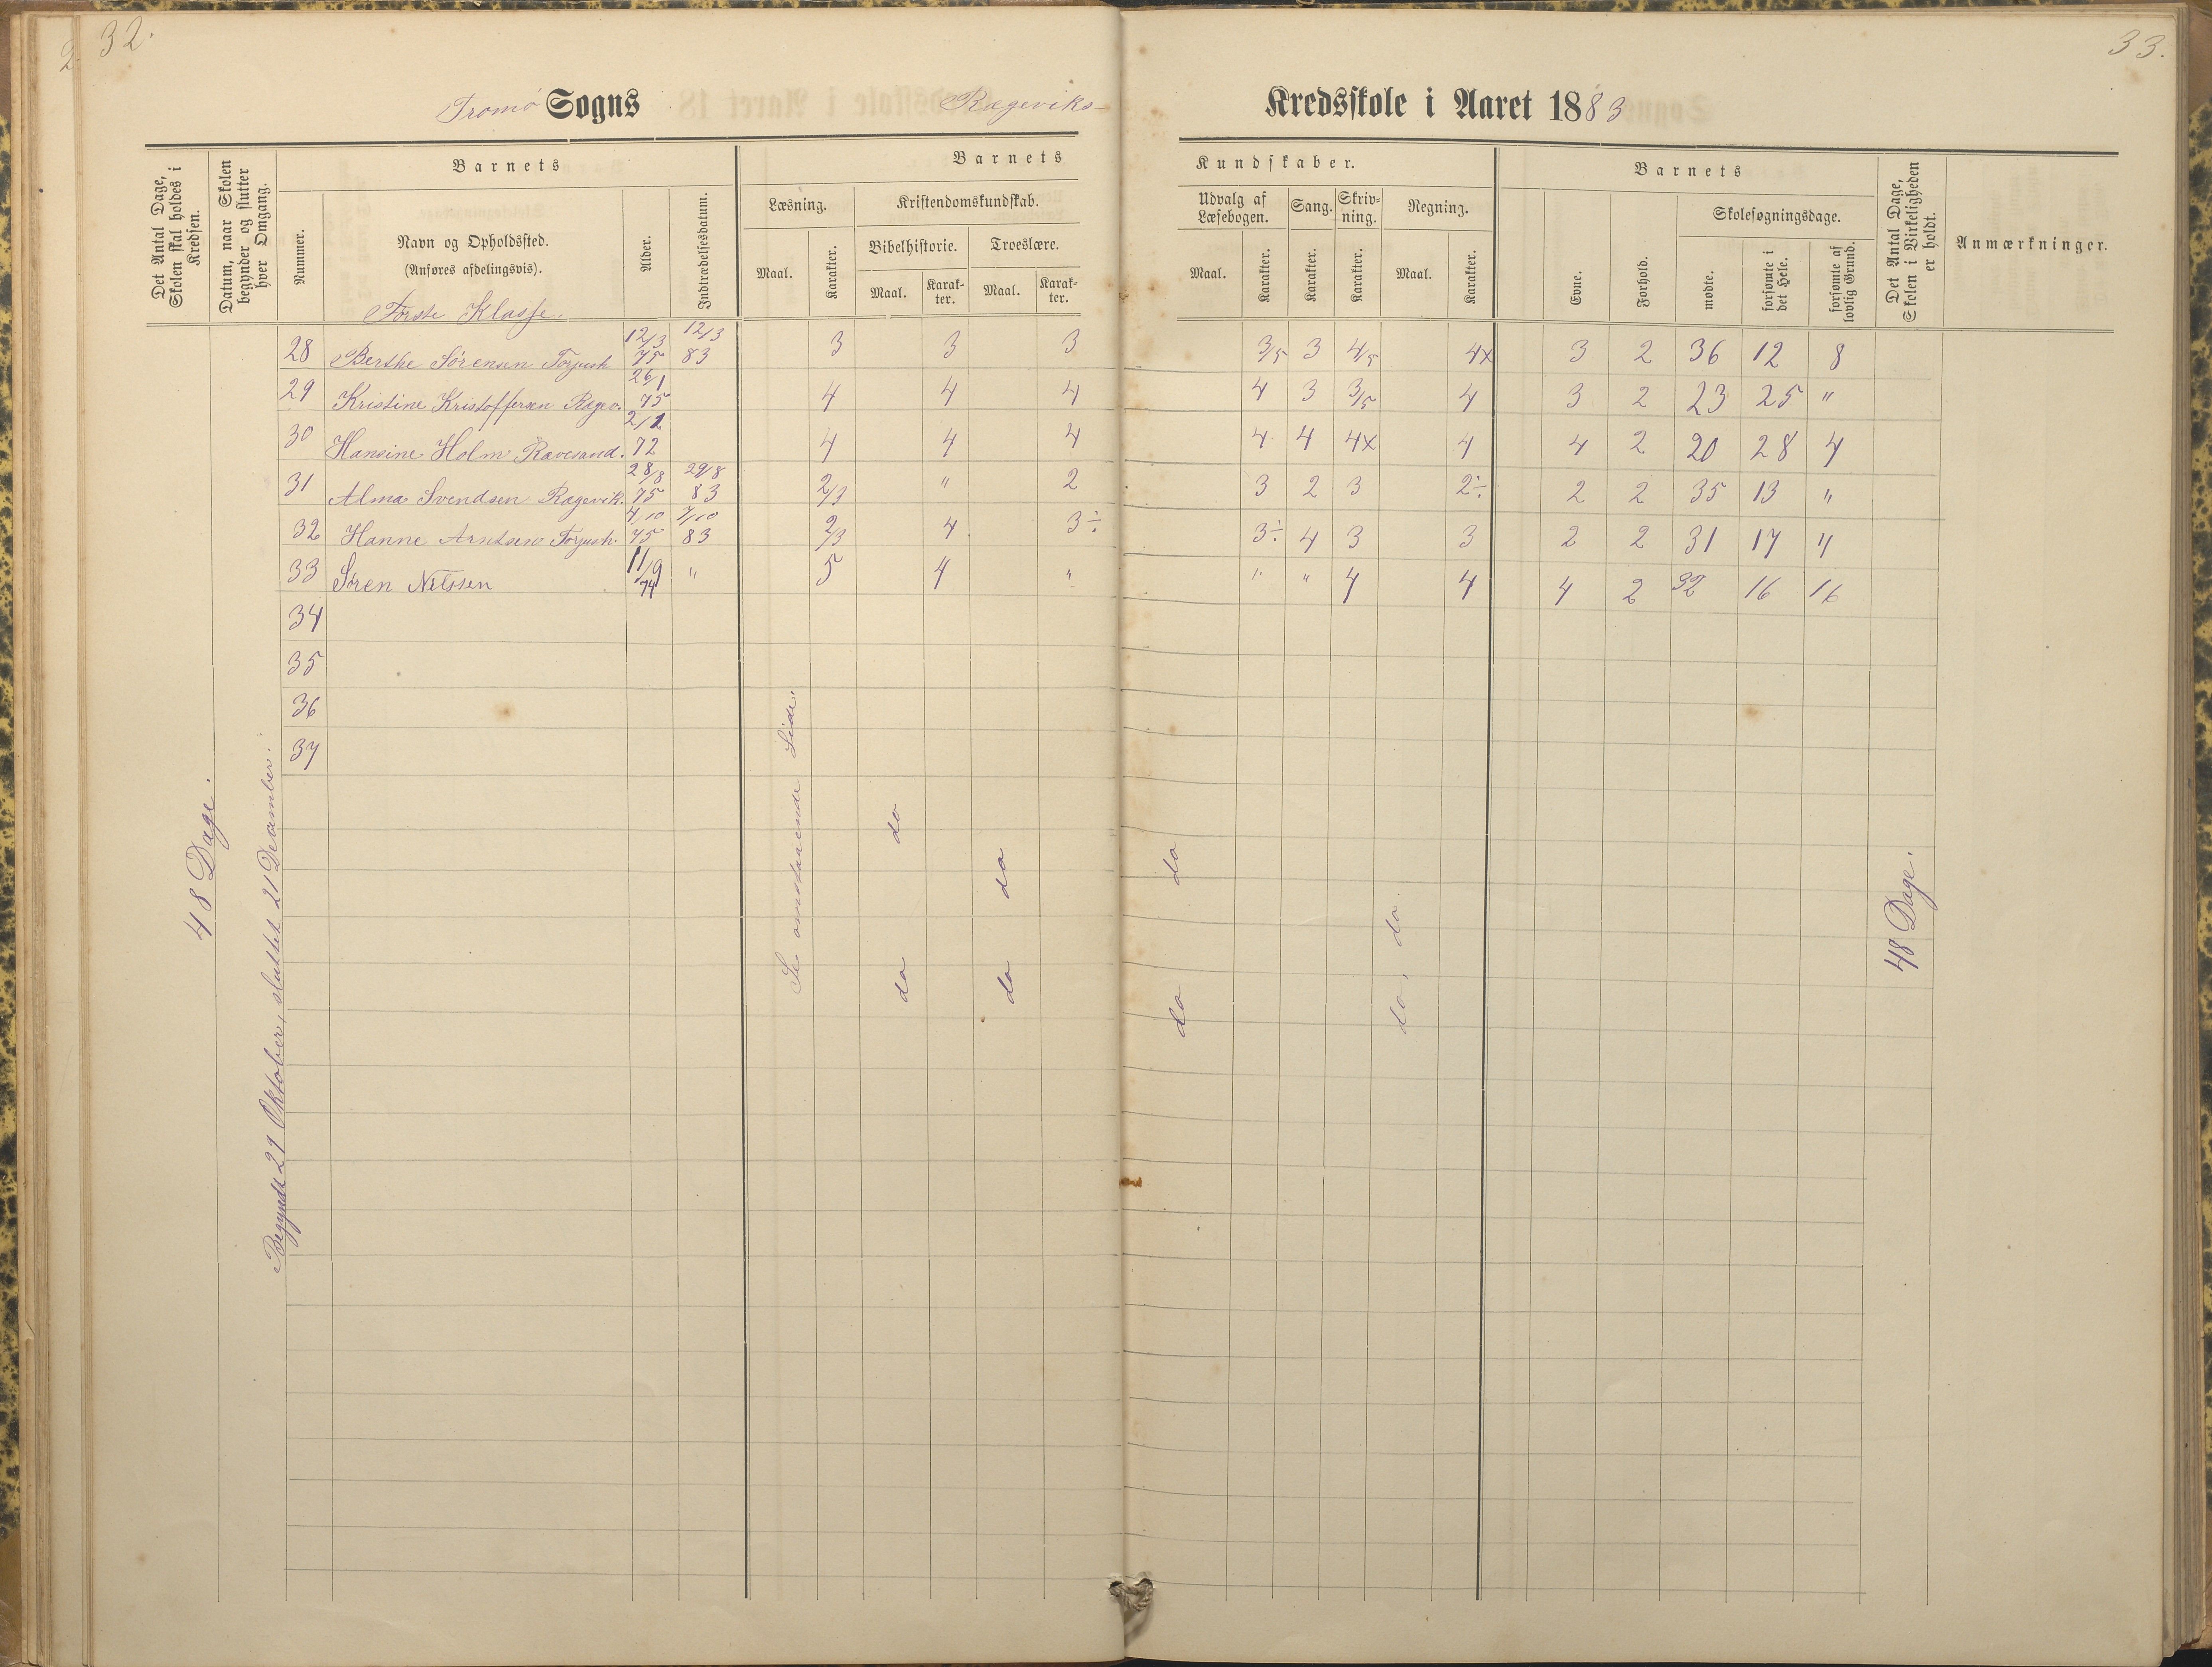 32.
33.
Tromø Sogns
Rægeviks-
Kredsskole i Aaret 1883
Det Antal Dage, Skolen skal holdes i Kredsen.
Datum, naar Skolen begynder og slutter hver Omgang.
Barnets
Nummer.
Navn og Opholdssted.
(Anføres afdelingsvis).
Første Klasse.
Alder.
Indtrædelsesdatum.
Barnets
Læsning.
Maal.
Karakter.
Kristendomskundskab.
Bibelhistorie.
Maal.
Karak-ter.
Troeslære.
Maal.
Karak-ter.
Kundskaber.
Udvalg af Læsebogen.
Maal.
Karakter.
Sang.
Karakter.
Skriv-ning.
Karakter.
Regning.
Maal.
Karakter.
Barnets
Evne.
Forhold.
Skolesøgningsdage.
mødte.
forsømte i det Hele.
forsømte af lovlig Grund.
Det Antal Dage, Skolen i Virkeligheden er holdt.
Anmærkninger.
28 Berthe Sørensen Torjush. 12/3 75 12/3 83 3 3 3 3/5 3 4/5 4x 3 2 36 12 8
29 Kristine Kristoffersen Rægev. 26/1 75 4 4 4 4 3 3/5 4 3 2 23 25 "
30 Hansine Holm Ravesand. 72 4 4 4 4 4 4x 4 4 2 20 28 4
31 Alma Svendsen Rægevik. 28/8 75 29/8 83 2/3 " 2 3 2 3 2÷ 2 2 35 13 "
32 Hanne Arntsen Torjush. 4/10 75 7/10 83 2/3 4 3÷ 3÷ 4 3 3 2 2 31 17 4
33 Søren Nilssen 11/9 74 " 5 4 " " " 4 4 4 2 32 16 16
34
35
36
37
48 Dage.
Begyndt 29 Oktober, sluttet 21 December.
Se omstaaende Side.
do
do
do
do
do
do
do.
do,
48 Dage.